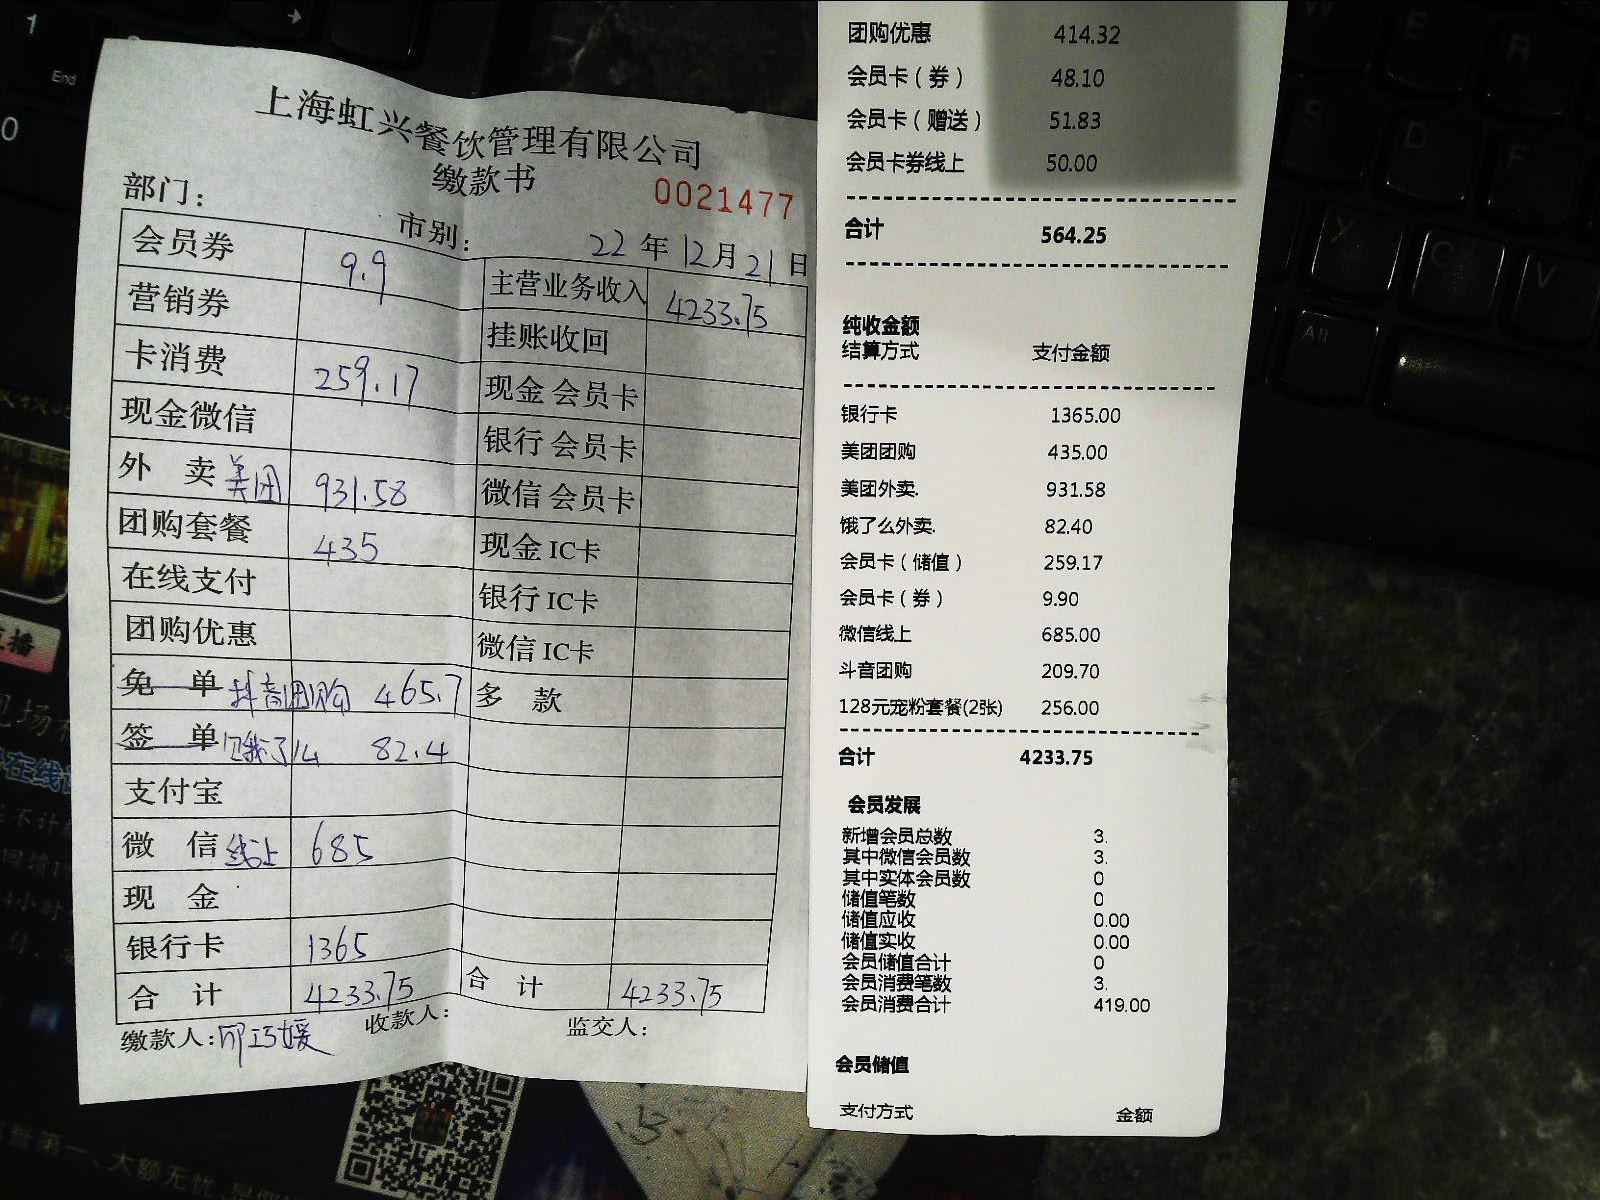 1
End
0
上海虹兴餐饮管理有限公司
缴款书
0021477
部门：
市别：
22年12月21日
会员券 9.9 主营业务收入 4233.75
营销券 挂账收回
卡消费 259.17 现金会员卡
现金微信 银行会员卡
外 卖 美团 931.58 微信会员卡
团购套餐 435 现金IC卡
在线支付 银行IC卡
团购优惠 微信IC卡
免 单 抖音团购 465.7 多 款
签 单 饿了么 82.4
支付宝
微 信 线上 685
现 金
银行卡 1365
合 计 4233.75 合 计 4233.75
缴款人： 收款人： 监交人：
团购优惠 414.32
会员卡（券） 48.10
会员卡（赠送） 51.83
会员卡券线上 50.00
合计 564.25
纯收金额
结算方式 支付金额
银行卡 1365.00
美团团购 435.00
美团外卖. 931.58
饿了么外卖. 82.40
会员卡（储值） 259.17
会员卡（券） 9.90
微信线上 685.00
斗音团购 209.70
128元宠粉套餐(2张) 256.00
合计 4233.75
会员发展
新增会员总数 3.
其中微信会员数 3.
其中实体会员数 0
储值笔数 0
储值应收 0.00
储值实收 0.00
会员储值合计 0
会员消费笔数 3.
会员消费合计 419.00
会员储值
支付方式 金额
E
R
S
D
F
X
C
V
Alt